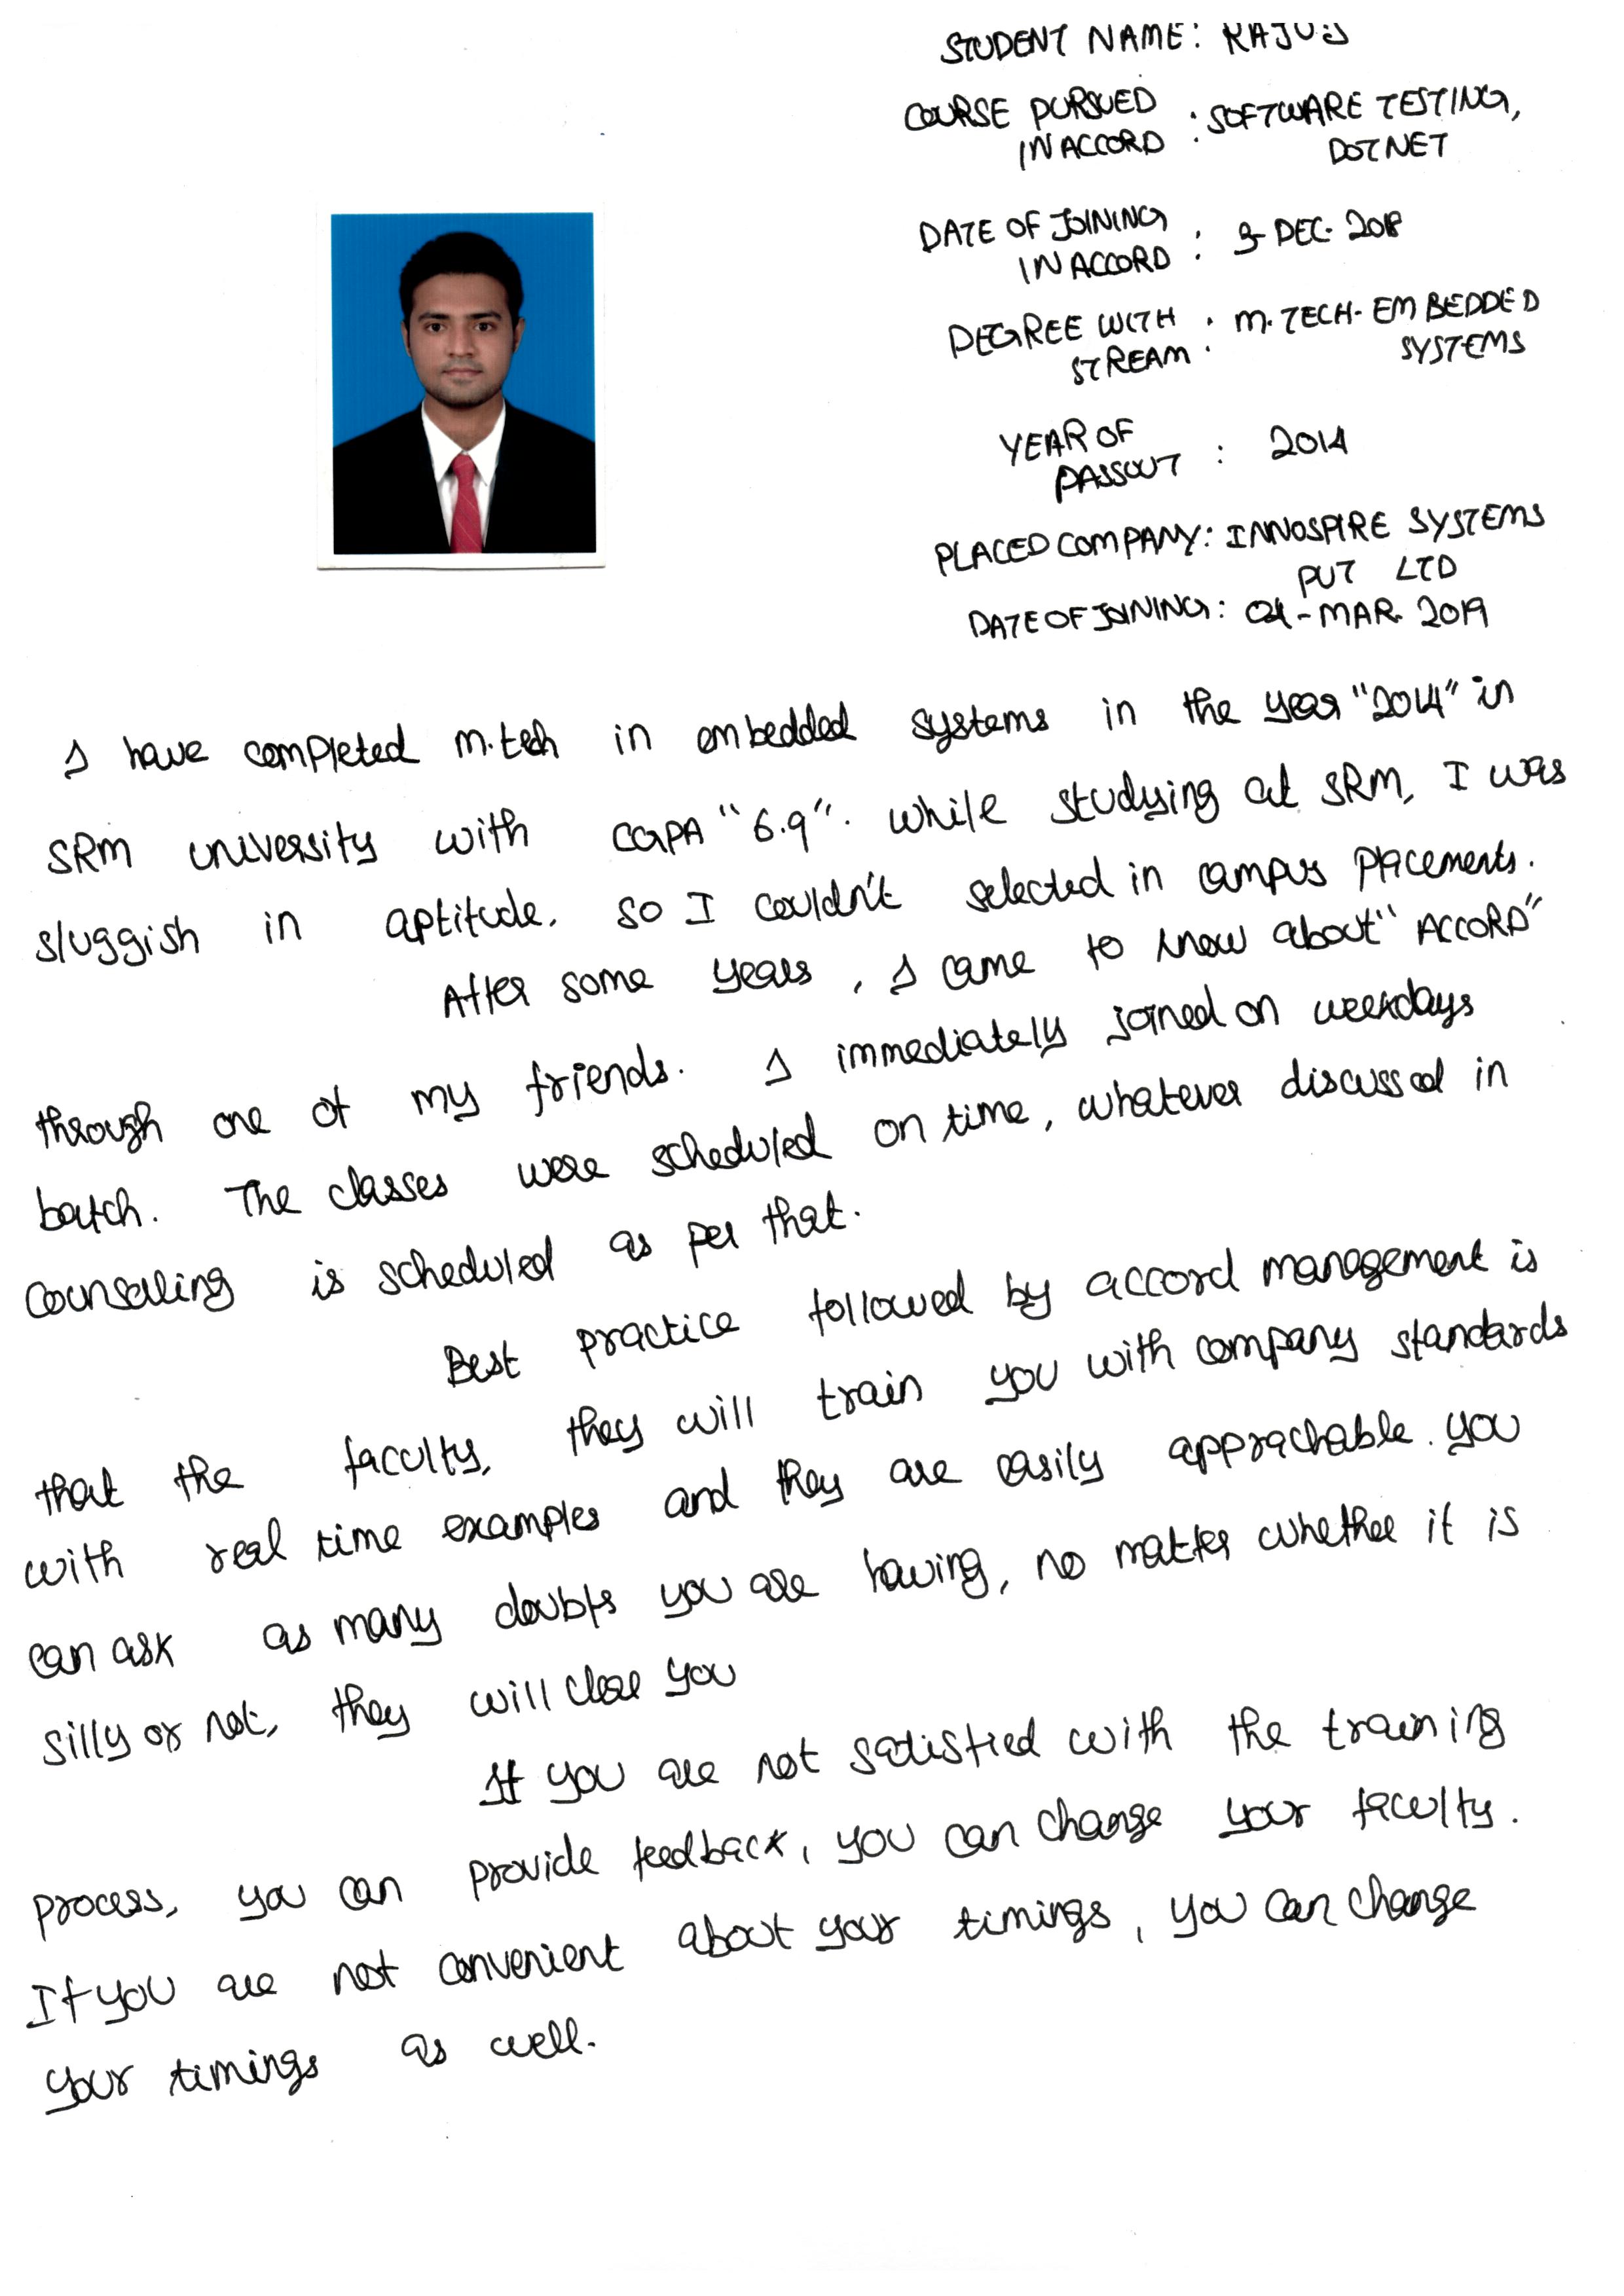 STUDENT NAME:
COURSE PURSUED
IN ACCORD : SOFTWARE TESTING,
DOTNET
DATE OF JOINING
IN ACCORD : 3-DEC-2018
DEGREE WITH
STREAM : M.TECH-EMBEDDED
SYSTEMS
YEAR OF
PASSOUT : 2014
PLACED COMPANY: INNOSPIRE SYSTEMS
PVT LTD
DATE OF JOINING: -MAR-2019
I have completed M.tech in embedded systems in the year "2014" in
SRM university with CGPA "6.9". While studying at SRM, I was
sluggish in aptitude. so I couldn't selected in campus placements.
After some years, I came to know about "ACCORD"
through one of my friends. I immediately joined on weekdays
batch. The classes were scheduled on time, whatever discussed in
Counseling is scheduled as per that.
Best practice followed by accord management is
that the faculty, they will train you with company standards
with real time examples and they are easily apprachable. you
can ask as many doubts you are having, no matter whether it is
silly or not, they will you
If you are not satisfied with the training
process, you can provide feedback, you can change your faculty.
If you are not convenient about your timings, you can change
your timings as well.